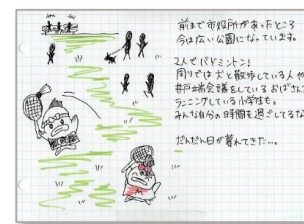 前まで市役所があったところ
今は広い公園になっています。
2人でバドミントン!
周りでは犬と散歩している人や
井戸端会議をしているおばさん
ランニングしている小学生も。
みんな自分の時間を過ごしてるな
だんだん日が暮れてきた…。